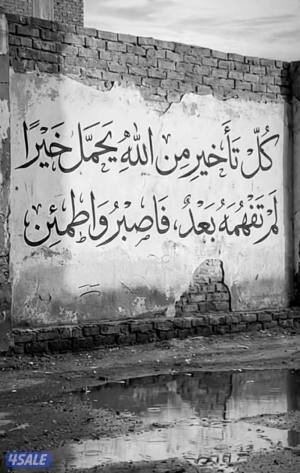 كُلّ تَأخير مِن اللهِ يَحمل خَيرًا
لَم تَفْهَمهُ بَعدٌ، فَاصبرُ وَاطمئِن
4SALE